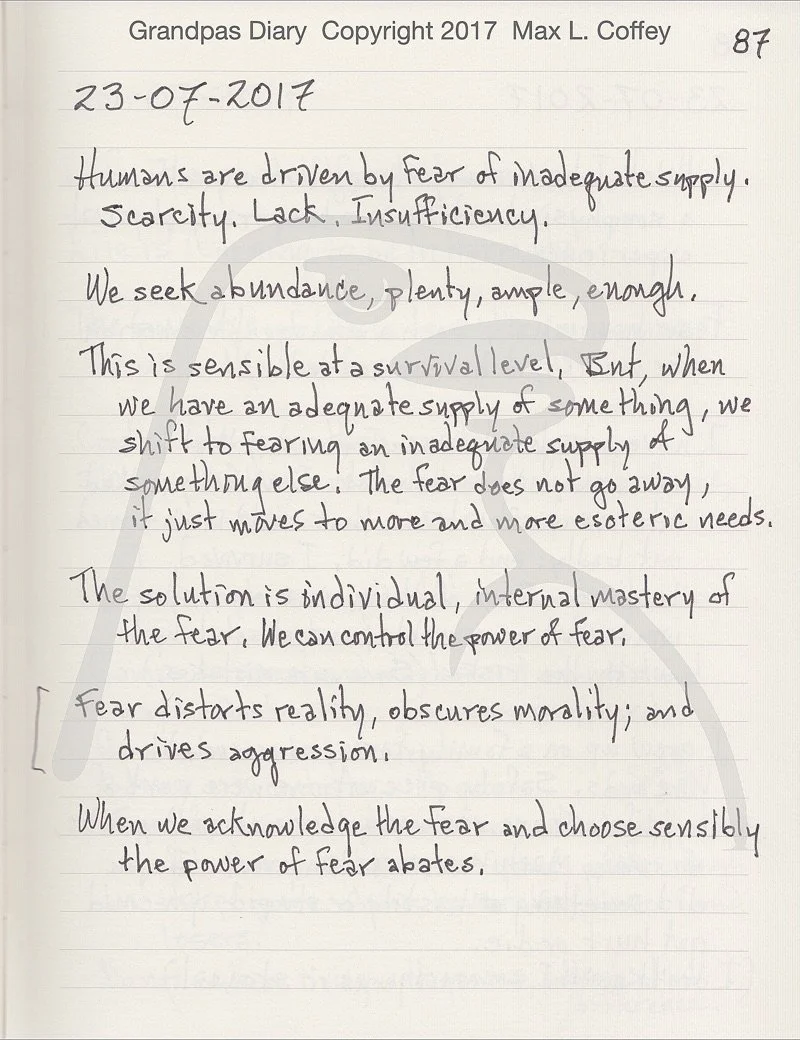 Grandpas Diary Copyright 2017 Max L. Coffey
87
23-07-2017
Humans are driven by fear of inadequate supply.
Scarcity. Lack. Insufficiency.
We seek abundance, plenty, ample, enough.
This is sensible at a survival level, But, when
we have an adequate supply of something, we
shift to fearing an inadequate supply of
something else! The fear does not go away,
it just moves to more and more esoteric needs.
The solution is individual, internal mastery of
the fear. We can control the power of fear.
Fear distorts reality, obscures morality; and
drives aggression.
When we acknowledge the fear and choose sensibly
the power of fear abates.